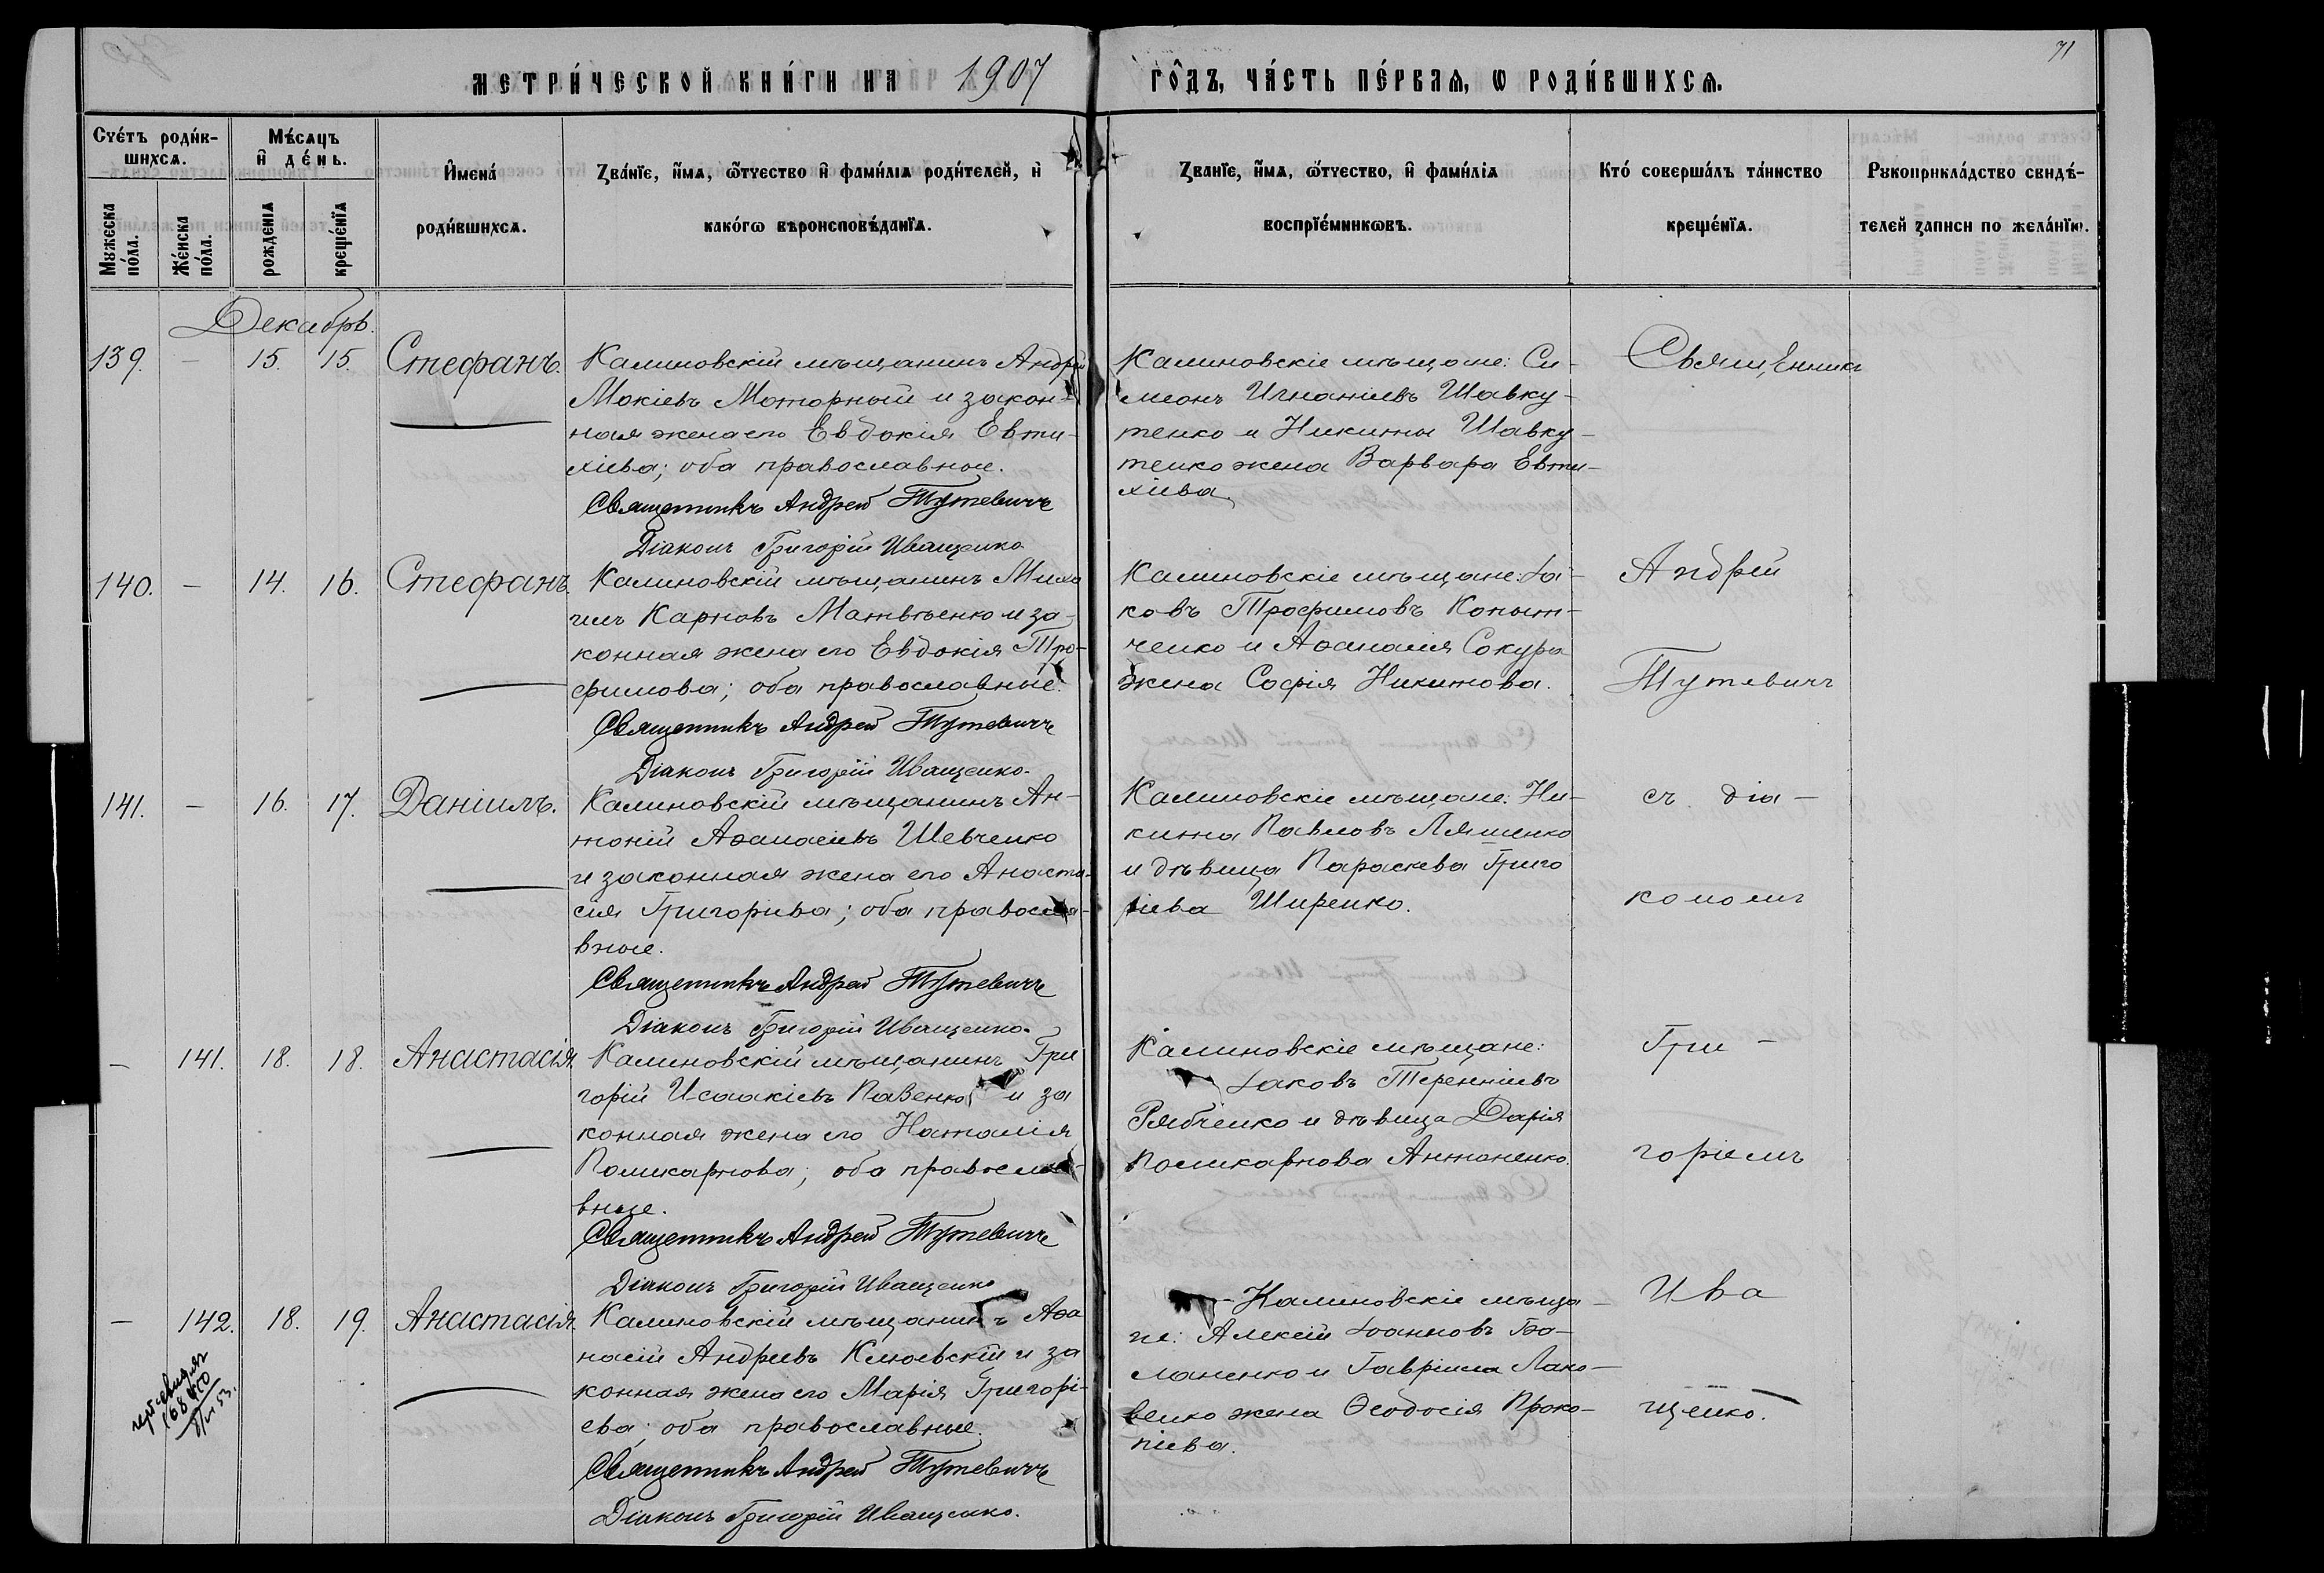 71
МЕТРИ́ЧЕСКОЙ КНИ́ГИ НА 1907 ГО́ДЪ, ЧА́СТЬ ПЕ́РВАѦ, Ѡ РОДИ́ВШИХСѦ.
Счéтъ роди́в-
шихсѧ.
Мѣ́сѧцъ
и̑ де́нь.
Мꙋжеска
по́ла.
Же́нска
по́ла.
рожденїѧ
креще́нїѧ
И̑мена́
роди́вшихсѧ.
Ꙁва́нїе, и̑́мѧ, ѻ̑́тчество и̑ фами́лїѧ роди́телей, и̑
како́гѡ вѣроисповѣ́данїѧ.
Ꙁванїе, и̑́мѧ, ѻ̑́тчество, и̑ фами́лїѧ
воспрїе́мникѡвъ.
Кто́ соверша́лъ та́инство
креще́нїѧ.
Рꙋкоприкла́дство свидѣ́-
телей ꙁаписи по жела́нїю.
Декабрь.
139. — 15. 15. Стефанъ.
Калиновскій мѣщанинъ Андрей
Мокіевъ Моторный и закон-
ная жена его Евдокія Евти-
хіева; оба православные.
Священникъ Андрей Тутевичъ
Діаконъ Григорій Иващенко
Калиновскіе мѣщане: Си-
меонъ Игнатіевъ Шавку-
тенко и Никиты Шавку-
тенко жена Варвара Евти-
хіева.
Священникъ
140. — 14. 16. Стефанъ.
Калиновскій мѣщанинъ Миха
илъ Карповъ Матвѣенко и за-
конная жена его Евдокія Тро-
фимова; оба православные.
Священникъ Андрей Тутевичъ
Діаконъ Григорій Иващенко.
Калиновскіе мѣщане: Іа-
ковъ Трофимовъ Копыт-
ченко и Аѳанасія Сокура
жена Софія Никитова.
Андрей
Тутевичъ
141. — 16. 17. Даніилъ.
Калиновскій мѣщанинъ Ан-
тоній Аѳанасіевъ Шевченко
и законная жена его Анаста-
сія Григоріева; оба правосла-
вные.
Священникъ Андрей Тутевичъ
Діаконъ Григорій Иващенко.
Калиновскіе мѣщане: Ни-
кита Павловъ Ляшенко
и дѣвица Параскева Григо
ріева Ширенко.
съ діа-
кономъ
— 141. 18. 18. Анастасія.
Калиновскій мѣщанинъ Гри
горій Исаакіевъ Павенко и за
конная жена его Наталія
Поликарпова; оба правосла-
вные.
Священникъ Андрей Тутевичъ
Діаконъ Григорій Иващенко
Калиновскіе мѣщане:
Іаковъ Терентіевъ
Рябченко и дѣвица Дарія
Поликарпова Антоненко.
Гри-
горіемъ
— 142. 18. 19. Анастасія.
Калиновскій мѣщанинъ Аѳа
насій Андреевъ Клюевскій и за
конная жена его Марія Григорі-
ева; оба православные.
Священникъ Андрей Тутевичъ
Діаконъ Григорій Иващенко.
Калиновскіе мѣща-
не: Алексій Іоанновъ Ба-
ланенко и Гавріила Лако-
венко жена Ѳеодосія Проко-
піева.
Ива
щенко.